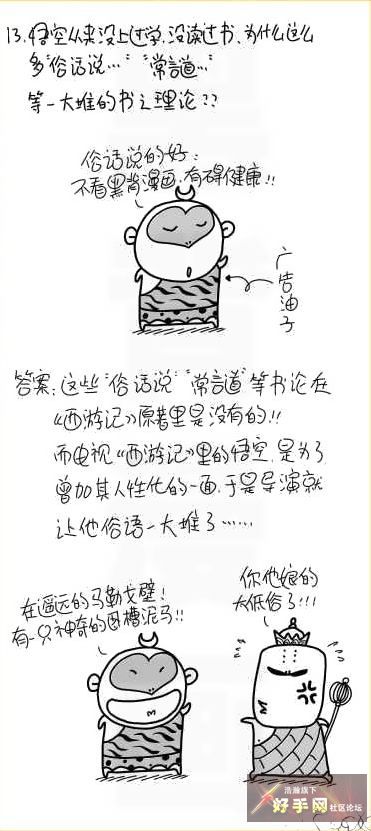 13.悟空从来没上过学、没读过书、为什么这么
多“俗话说…”“常言道…”
等一大堆的书之理论??
俗话说的好:
不看黑背漫画,有碍健康!!
广告油子
答案:这些“俗话说”“常言道”等书论在
《西游记》原著里是没有的!!
而电视《西游记》里的悟空,是为了
曾加其人性化的一面,于是导演就
让他俗语一大堆了……
在遥远的马勒戈壁!
有一只神奇的草泥马!!
你他娘的
太低俗了!!!
浩瀚旗下
好手网社区论坛